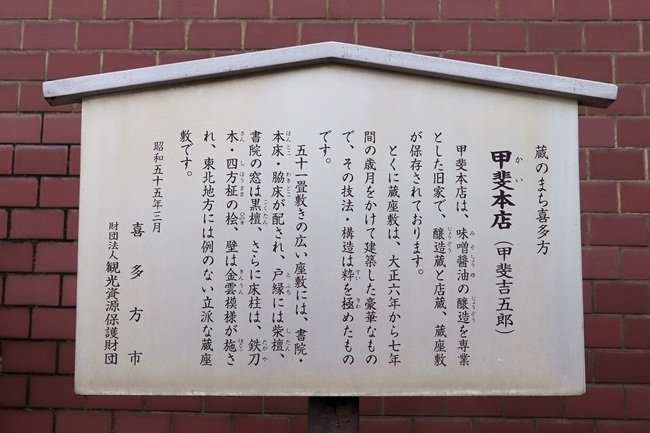 蔵のまち喜多方
甲斐本店(甲斐吉五郎)
甲斐本店は、味噌醤油の醸造を専業
とした旧家で、醸造蔵と店蔵、蔵座敷
が保存されております。
とくに蔵座敷は、大正六年から七年
間の歳月をかけて建築した豪華なもの
で、その技法・構造は粋を極めたもの
です。
五十一畳敷きの広い座敷には、書院・
本床・脇床が配され、戸縁には柴檀、
書院の窓は黒檀、さらに床柱は、鉄刀
木・四方柾の桧、壁は金雲模様が施さ
れ、東北地方には例のない立派な蔵座
敷です。
昭和五十五年三月
喜多方市
財団法人観光資源保護財団